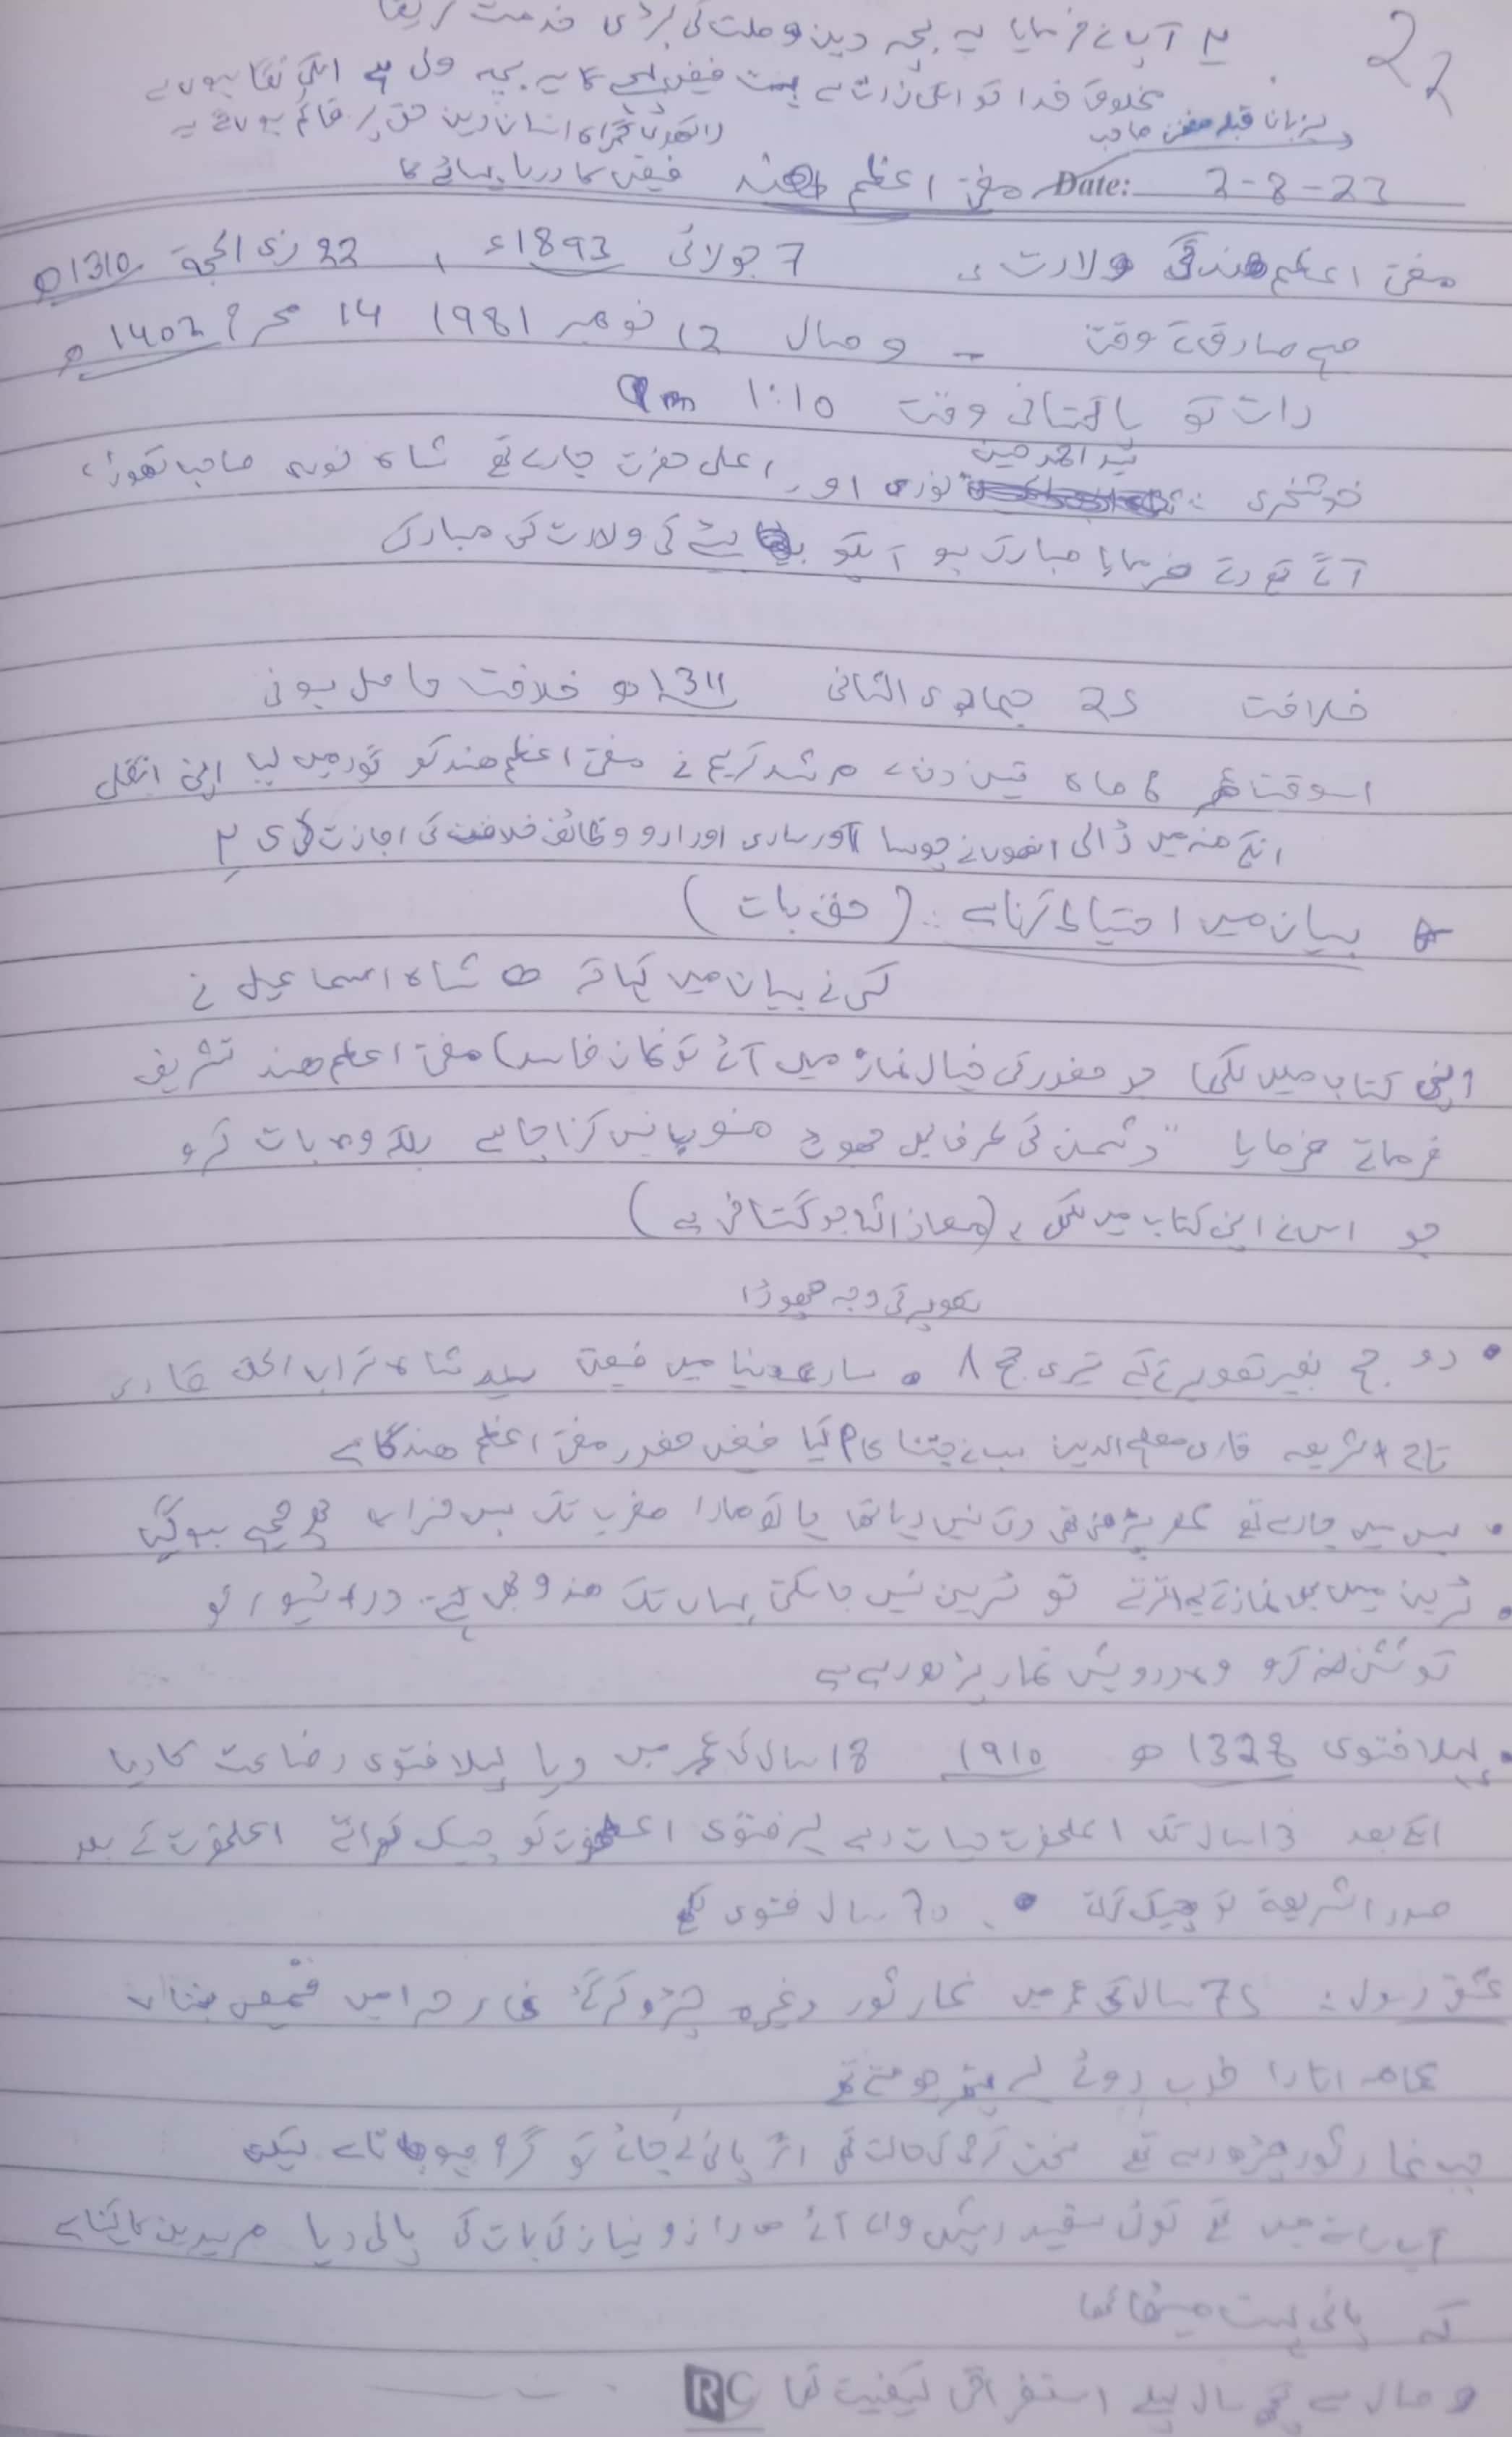 22
۲ آپ نے فرمایا یہ بچہ دین و ملت کی بڑی خدمت کریگا
مخلوق خدا کو اسکی ذات سے بہت فیض پہنچے گا یہ بچہ ولی ہے اسکی نگاہوں سے
لاکھوں گمراہ انسان دین حق پر قائم ہونگے یہ
بزبان قبلہ مفتی صاحب
فیض کا دریا بہائے گا
مفتی اعظم ہند
Date: 2-8-23
مفتی اعظم ہند کی ولادت 7 جولائی 1893ء ، 22 ذی الحجۃ 1310ھ
صبح صادق کے وقت ۔ وصال 12 نومبر 1981 14 محرم 1402ھ
رات کو پاکستانی وقت 1:10 Pm
سید احمد حسین
خوشخبری : نوری اور اعلی حضرت جارہے تھے شاہ نوری صاحب تھوڑے
آگے تھے فرمایا مبارک ہو آپکو بیٹے کی ولادت کی مبارک
خلافت 25 جمادی الثانی 1311ھ خلافت حاصل ہوئی
اسوقت عمر 6 ماہ تین دن ، مرشد کریم نے مفتی اعظم ہند کو گود میں لیا اپنی انگلی
انکے منہ میں ڈالی انھوں نے چوسا اور ساری اوراد و وظائف خلافت کی اجازت دی ۲
بیان میں احتیاط کرنا ہے : (حق بات)
کسی نے بیان میں کہا کہ شاہ اسماعیل نے
اپنی کتاب میں لکھا جو حضور کی خیال نماز میں آئے تو نماز فاسد) مفتی اعظم ہند تشریف
فرما تھے فرمایا "دشمن کی طرف بھی جھوٹ منسوب نہیں کرنا چاہیے بلکہ وہ بات کرو
جو اس نے اپنی کتاب میں لکھی ، (معاذ اللہ جو گستاخی ہے)
تصویر کی وجہ چھوڑا
• دو حج بغیر تصویر کے کیے تیری حج ۸ • ساری دنیا میں فیض سید شاہ تراب الحق قادری
تاج الشریعہ قاری مصلح الدین سب نے جتنا کام کیا فیض حضور مفتی اعظم ہند کا ہے
• بس میں جارہے تھے عصر پڑھنی تھی رک نہیں رہا تھا مغرب تک بس
• ٹرین میں بھی نماز کے لیے اترتے تو ٹرین نہیں جاسکتی یہاں تک ہندو بھی ڈرائیور کو
کہ وہ درویش نماز پڑھ رہے ہے
• پہلا فتوی 1328ھ 1910 18 سال کی عمر میں دیا پہلا فتوی رضاعت کا دیا
اسکے بعد 13 سال تک اعلحضرت حیات رہے ہر فتوی اعلحضرت کو چیک کرواتے اعلحضرت کے بعد
صدر الشریعۃ کو چیک کراتے • 70 سال فتوی لکھے
عشق رسول : 75 سال کی عمر میں غار ثور وغیرہ چڑھ کر گئے غار حرا میں قمیص
عمامہ اتارا خوب روئے
جب غار ثور چڑھ رہے تھے سخت گرمی کی حالت تھی اگر پانی لے جائے تو گرم ہو جاتا ہے لیکن
آپ راستے میں تھے کوئی سفید ریش والے آئے راز و نیاز کی بات کی پانی دیا مریدین کا کہنا ہے
کہ پانی بہت میٹھا تھا
وصال سے کچھ سال پہلے استغراقی کیفیت تھا
RC